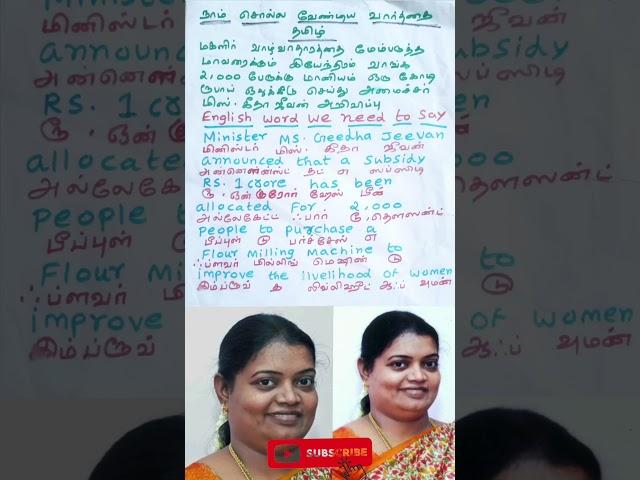 நாம் சொல்ல வேண்டிய வார்த்தை
தமிழ்
மகளிர் வாழ்வாதாரத்தை மேம்படுத்த
மாவரைக்கும் இயந்திரம் வாங்க
2,000 பேருக்கு மானியம் ஒரு கோடி
ரூபாய் ஒதுக்கீடு செய்து அமைச்சர்
மிஸ். கீதா ஜீவன் அறிவிப்பு
English word we need to say
Minister MS. Geedha Jeevan
மினிஸ்டர் மிஸ். கீதா ஜீவன்
announced that a subsidy
அனௌன்ஸ்ட் தட் எ சப்ஸிடி
RS. 1 crore has been
ரூ. ஒன் குரோர் ஹேஸ் பீன்
allocated for 2,000
அல்லேகேட்ட் ஃபார் டு, தௌஸண்ட்
people to purchase a
பீப்புள் டு பர்ச்சேஸ் எ
Flour Milling Machine to
ஃப்ளவர் மில்லிங் மெஷின் டு
improve the livelihood of women
இம்ப்ரூவ் த லிவ்லிஹூட் ஆஃப் வுமன்
SUBSCRIBE